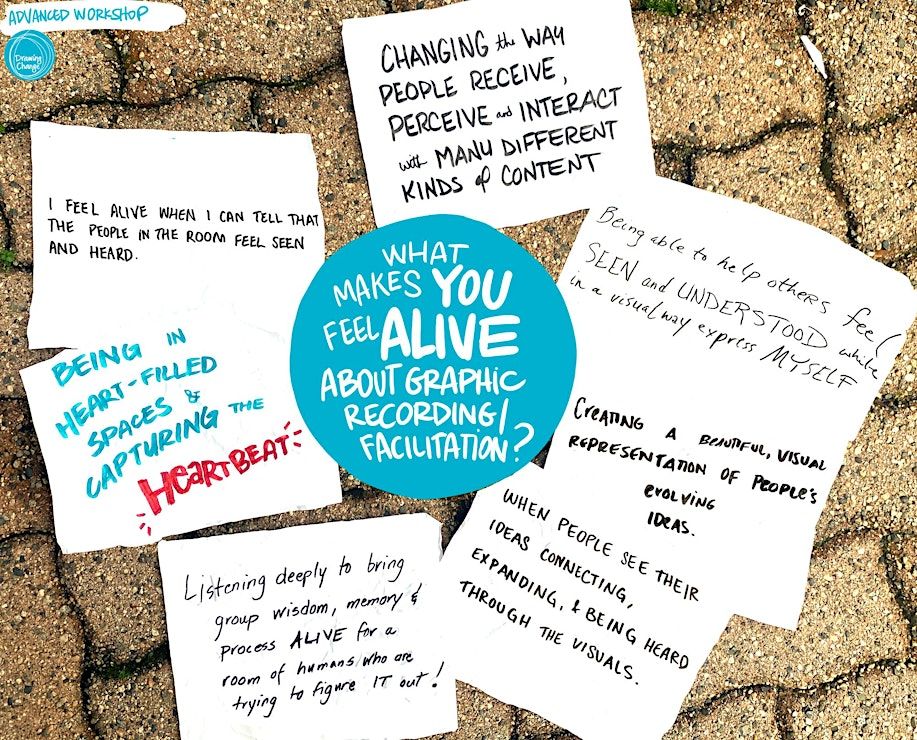 ADVANCED WORKSHOP
Drawing
Change
CHANGING the WAY
PEOPLE RECEIVE,
PERCEIVE and INTERACT
with MANY DIFFERENT
KINDS of CONTENT
I FEEL ALIVE WHEN I CAN TELL THAT
THE PEOPLE IN THE ROOM FEEL SEEN
AND HEARD.
WHAT
MAKES YOU
FEEL ALIVE
ABOUT GRAPHIC
RECORDING/
FACILITATION?
Being able to help others feel
SEEN and UNDERSTOOD while
in a visual way express MYSELF
BEING IN
HEART-FILLED
SPACES &
CAPTURING THE
HEARTBEAT
CREATING A BEAUTIFUL, VISUAL
REPRESENTATION OF PEOPLE'S
EVOLVING
IDEAS.
WHEN PEOPLE SEE THEIR
IDEAS CONNECTING,
EXPANDING, & BEING HEARD
THROUGH THE VISUALS.
Listening deeply to bring
group wisdom, memory &
process ALIVE for a
room of humans who are
trying to figure IT out!